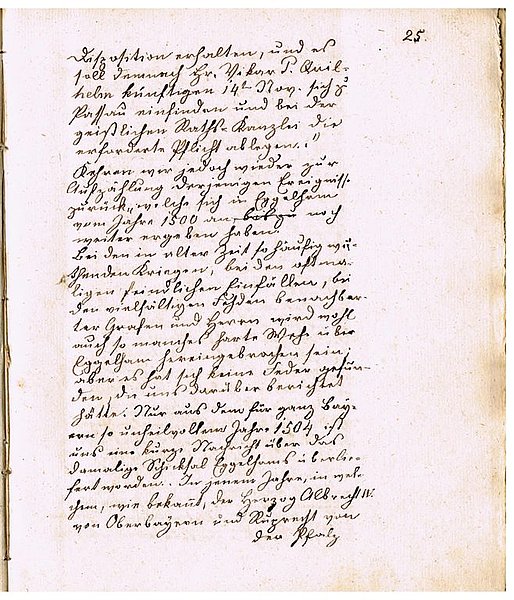 25.
Disposition erhalten, und es
soll demnach Hr. Vikar P. Quil-
helm künftigen 14t Nov. sich zu
Passau einfinden und bei der
geistlichen Raths-Kanzlei die
erforderte Pflicht ablegen."
Kehren wir jedoch wieder zur
Aufzählung derjenigen Ereignisse
zurück, welche sich in Eggelham
vom Jahre 1500 an, noch
weiter ergeben haben.
Bei den in alter Zeit so häufig wü-
thenden Kriegen, bei den oftma-
ligen feindlichen Einfällen, bei
den vielfältigen Fehden benachbar-
ter Grafen und Herrn wird wohl
auch so manches harte Wehe über
Eggelham hereingebrochen sein,
aber es hat sich keine Feder gefun-
den, die uns darüber berichtet
hätte. Nur aus dem für ganz Bay-
ern so unheilvollem Jahre 1504 ist
uns eine kurze Nachricht über das
damalige Schicksal Eggelhams überlie-
fert worden. In jenem Jahre, in wel-
chem, wie bekannt, der Herzog Albrecht IV.
von Oberbayern und Ruprecht von
der Pfalz